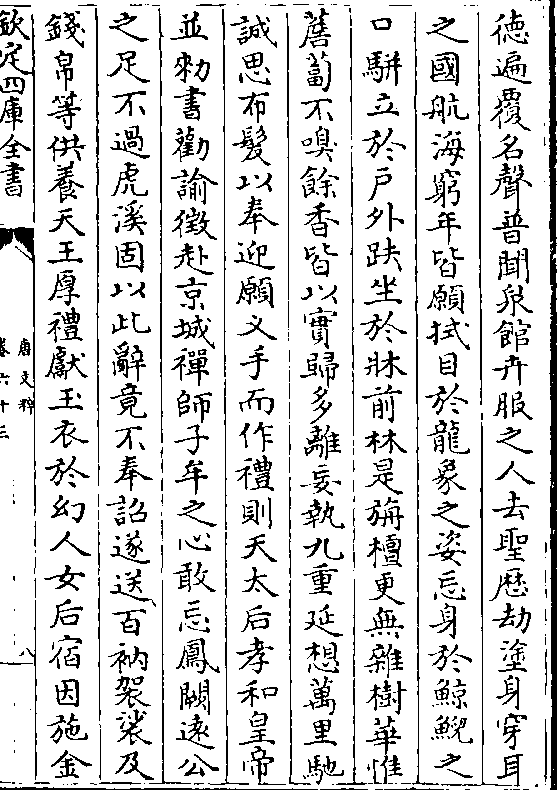 德遍覆名聲普聞泉館卉服之人去聖歴劫塗身穿耳
之國航海窮年皆願拭目於龍象之姿忘身於鯨鯢之
口駢立於戶外趺坐於牀前林是旃檀更無雜樹華惟
薝蔔不嗅餘香皆以實歸多離妄執九重延想萬里馳
誠思布髮以奉迎願义手而作禮則天太后孝和皇帝
並勑書勸諭徵赴京城禪師子牟之心敢忘鳳闕遠公
之足不過虎溪固以此辭竟不奉詔遂送百衲袈裟及
錢帛等供養天王厚禮獻玉衣於幻人女后宿因施金
欽定四庫全書
唐文粹
卷六十三
八